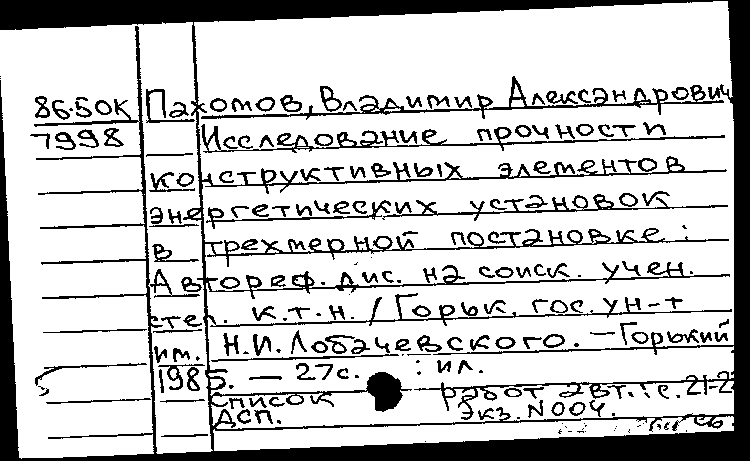 86-50К Пахомов, Владимир Александрович
7998 Исследование прочности
конструктивных элементов
энергетических установок
в трехмерной постановке :
Автореф. дис. на соиск. учен.
степ. к.т.н. / Горьк. гос. ун-т
им. Н.И. Лобачевского. – Горький
1985. – 27с. : ил.
Список работ авт.: с. 21-22
ДСП. Экз. N004.